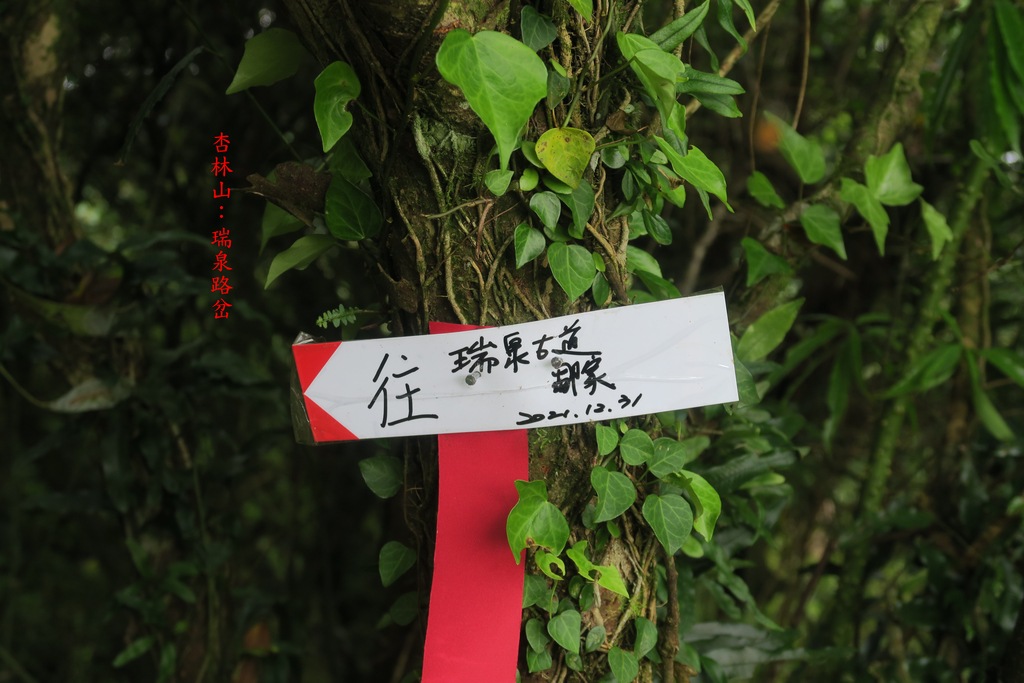 杏林山：瑞泉路岔
往
瑞泉古道
鄒家
2021.12.31